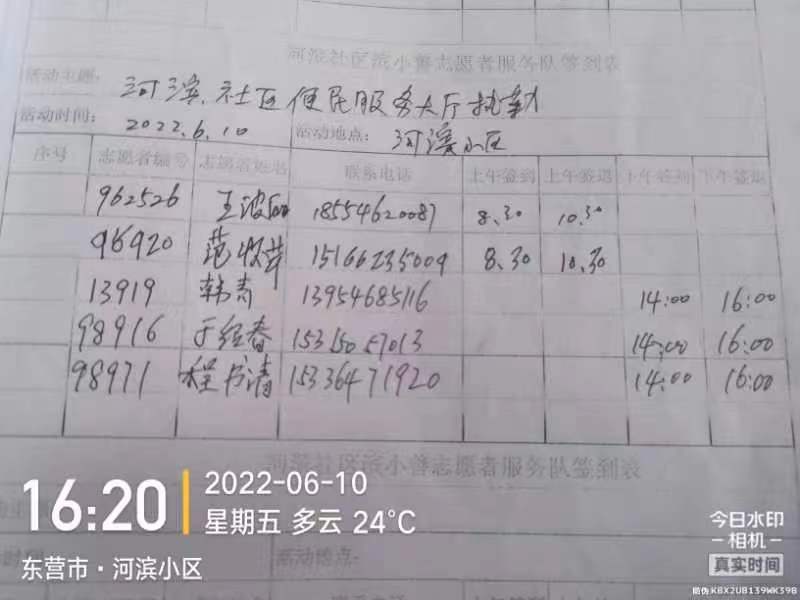 河滨社区滨小善志愿者服务队签到表
活动主题: 河滨社区便民服务大厅执勤
活动时间: 2022.6.10 活动地点: 河滨小区
序号 志愿者编号 志愿者姓名 联系电话 上午签到 上午签退 下午签到 下午签退
962526 王 18554620087 8.30 10.30
96920 范 15166235009 8.30 10.30
13919 韩青 13954685116 14:00 16:00
98916 于红春 15315057013 14:00 16:00
98971 程书清 15336471920 14:00 16:00
河滨社区滨小善志愿者服务队签到表
16:20 2022-06-10
星期五 多云 24°C
东营市·河滨小区
活动地点:
今日水印
-相机-
真实时间
防伪 KBX2UB139WK39B